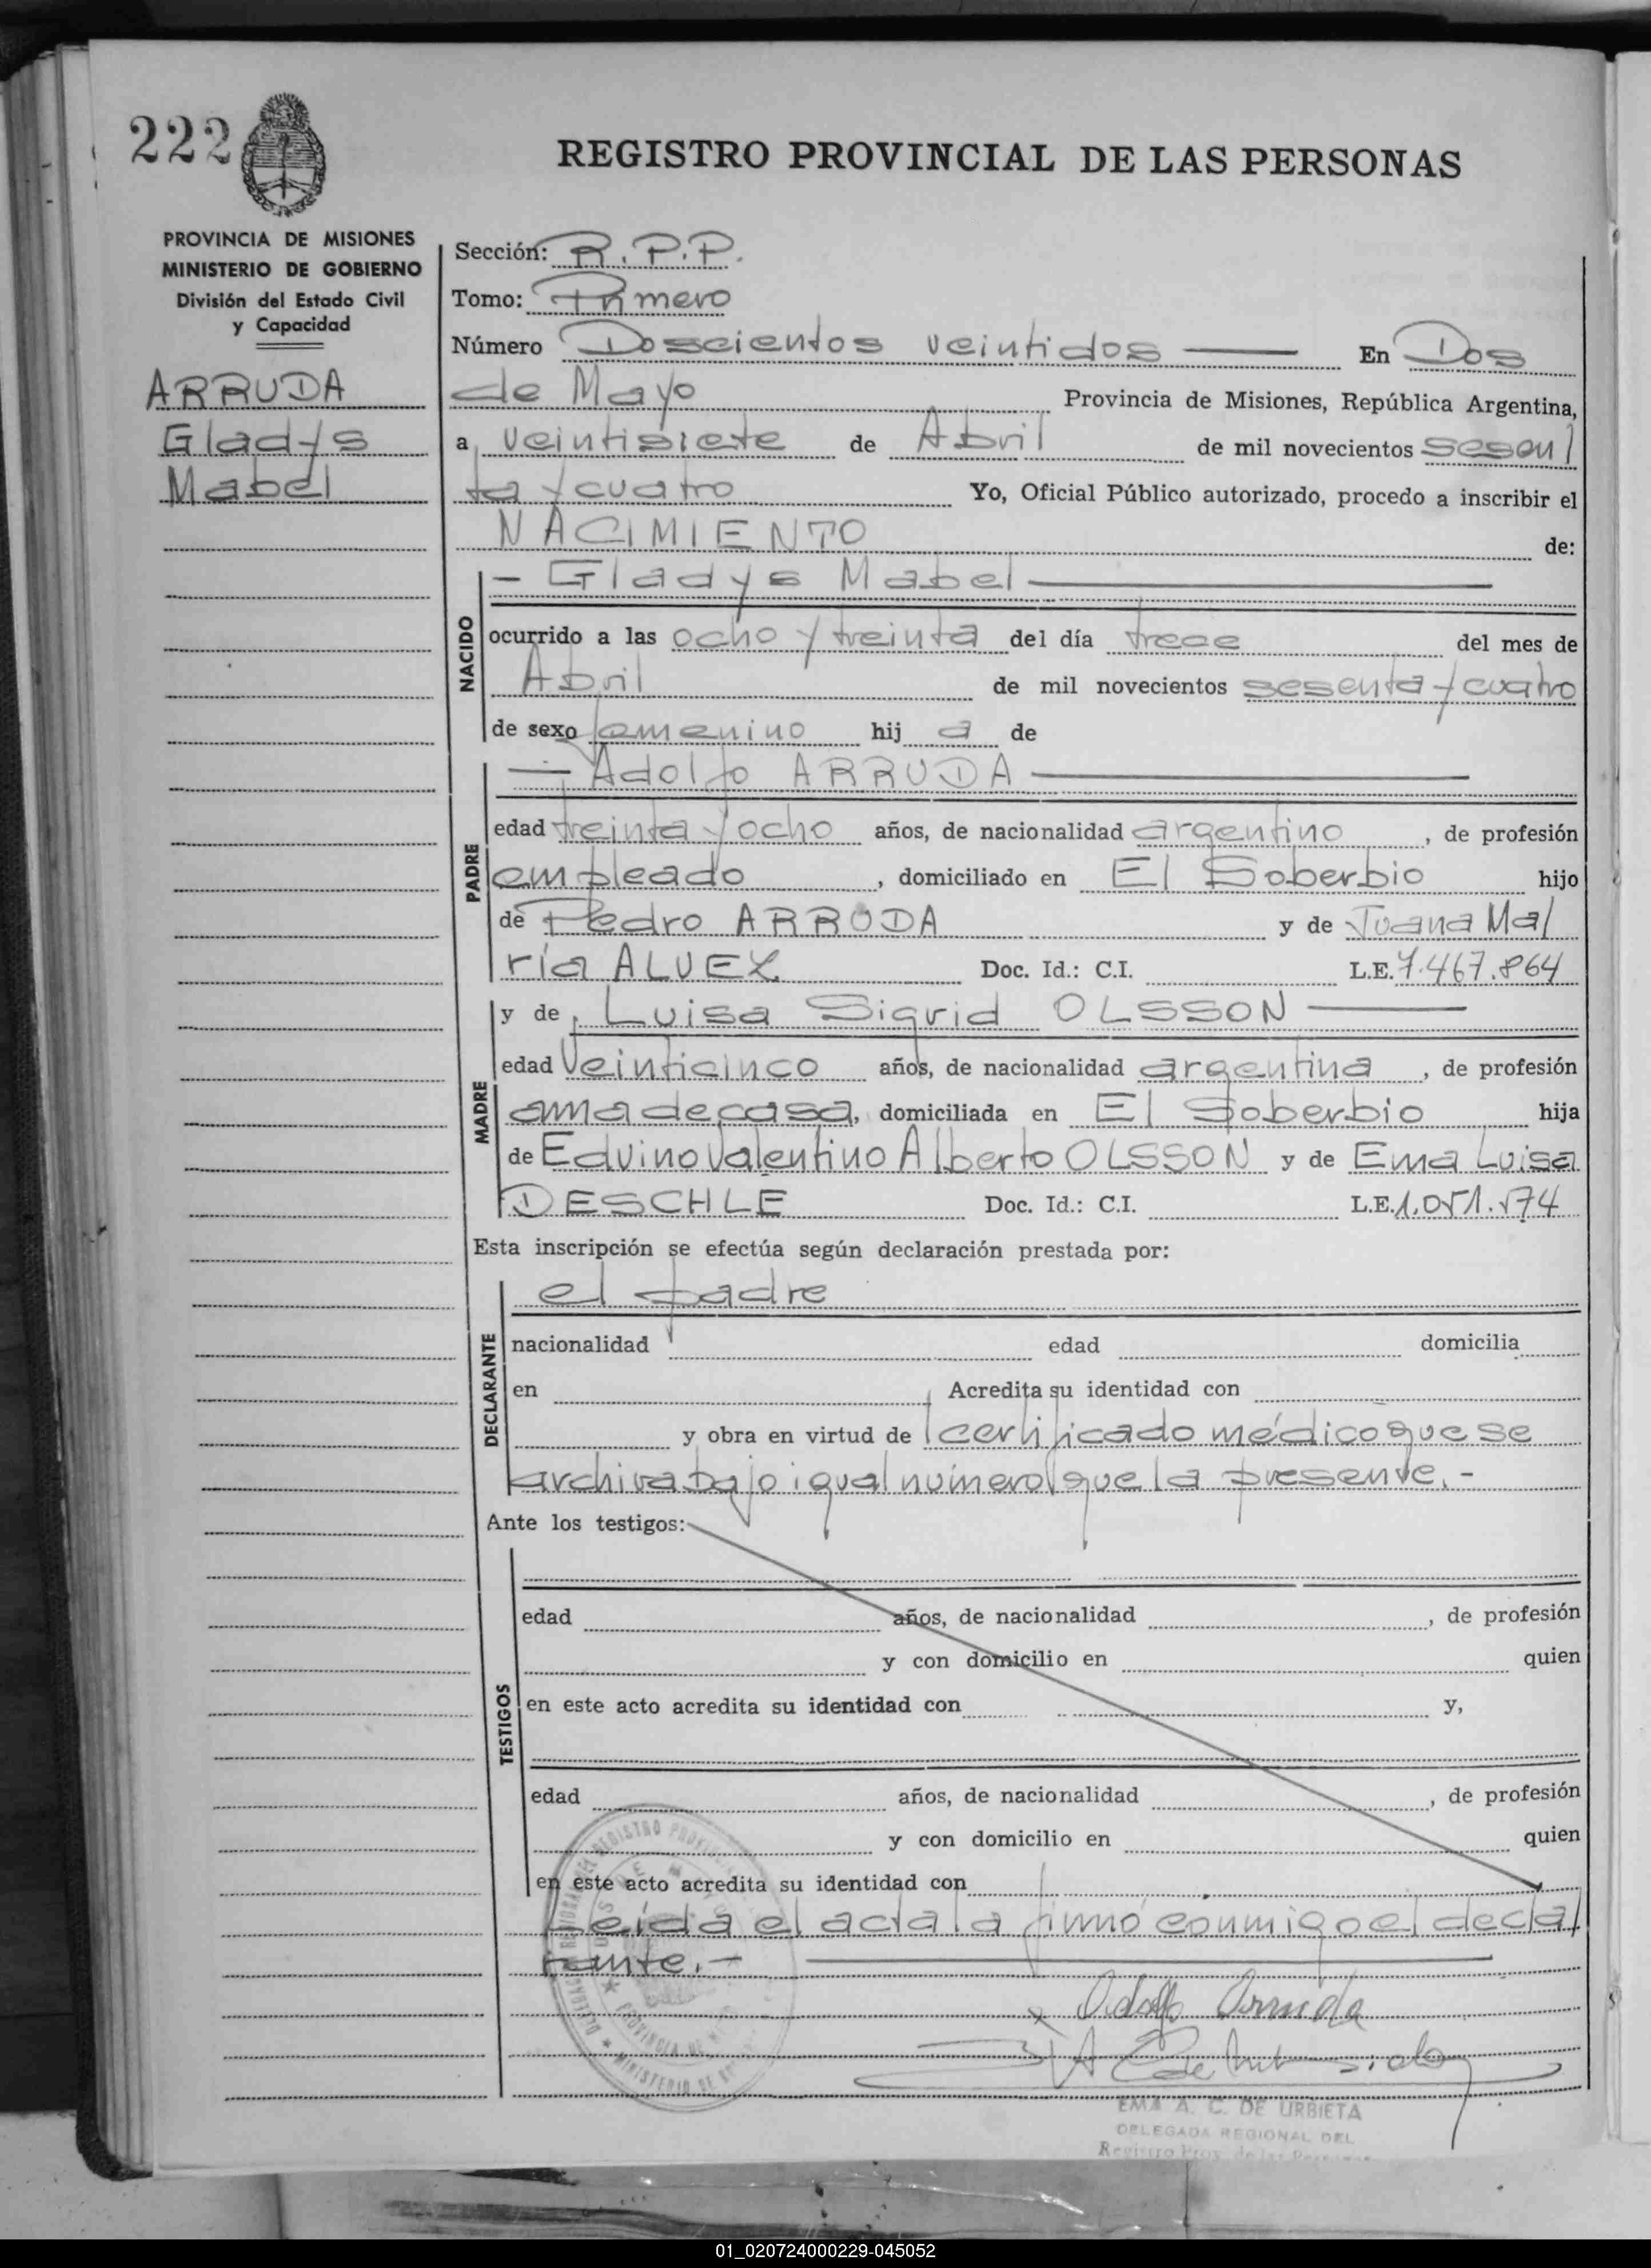 222
REGISTRO PROVINCIAL DE LAS PERSONAS
PROVINCIA DE MISIONES
MINISTERIO DE GOBIERNO
División del Estado Civil
y Capacidad
ARRUDA
Gladys
Mabel
Sección: R.P.P.
Tomo: Primero
Número Doscientos veintidos En Dos
de Mayo Provincia de Misiones, República Argentina,
a veintisiete de Abril de mil novecientos sesen/
ta y cuatro Yo, Oficial Público autorizado, procedo a inscribir el
NACIMIENTO de:
NACIDO
- Gladys Mabel
ocurrido a las ocho y treinta del día trece del mes de
Abril de mil novecientos sesenta y cuatro
de sexo femenino hij a de
PADRE
- Adolfo ARRUDA
edad treinta y ocho años, de nacionalidad argentino, de profesión
empleado, domiciliado en El Soberbio hijo
de Pedro ARRUDA y de Juana Ma/
ría ALVEZ Doc. Id.: C.I. L.E. 7.467.864
MADRE
y de Luisa Sigrid OLSSON
edad veinticinco años, de nacionalidad argentina, de profesión
ama de casa, domiciliada en El Soberbio hija
de Edvino Valentino Alberto OLSSON y de Ema Luisa
DESCHLE Doc. Id.: C.I. L.E. 1.051.574
Esta inscripción se efectúa según declaración prestada por:
DECLARANTE
el padre
nacionalidad edad domicilia
en Acredita su identidad con
y obra en virtud de certificado médico que se
archiva bajo igual número que la presente.-
Ante los testigos:
TESTIGOS
edad años, de nacionalidad , de profesión
y con domicilio en quien
en este acto acredita su identidad con y,
edad años, de nacionalidad , de profesión
y con domicilio en quien
en este acto acredita su identidad con
Leída el acta la firmó conmigo el decla/
rante.-
Adolfo Arruda
EMA A. C. DE URBIETA
DELEGADA REGIONAL DEL
Registro Prov. de las Personas
01_020724000229-045052